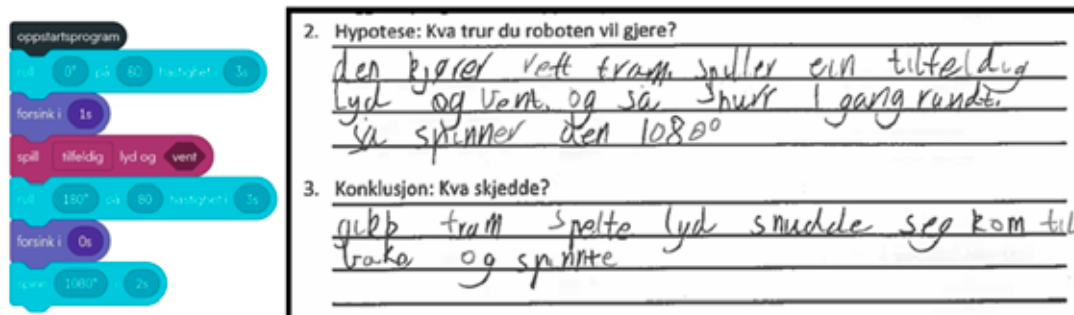 oppstartsprogram
rull 0° på 80 hastighet i 3s
forsink i 1s
spill tilfeldig lyd og vent
rull 180° på 80 hastighet i 3s
forsink i 0s
spinn 1080° i 2s
2. Hypotese: Kva trur du roboten vil gjere?
den kjører rett fram. spiller ein tilfeldig
lyd og vent. og så snurr 1 gang rundt.
så spinner den 1080°
3. Konklusjon: Kva skjedde?
gikk fram spelte lyd snudde seg kom til
bake og spinnte